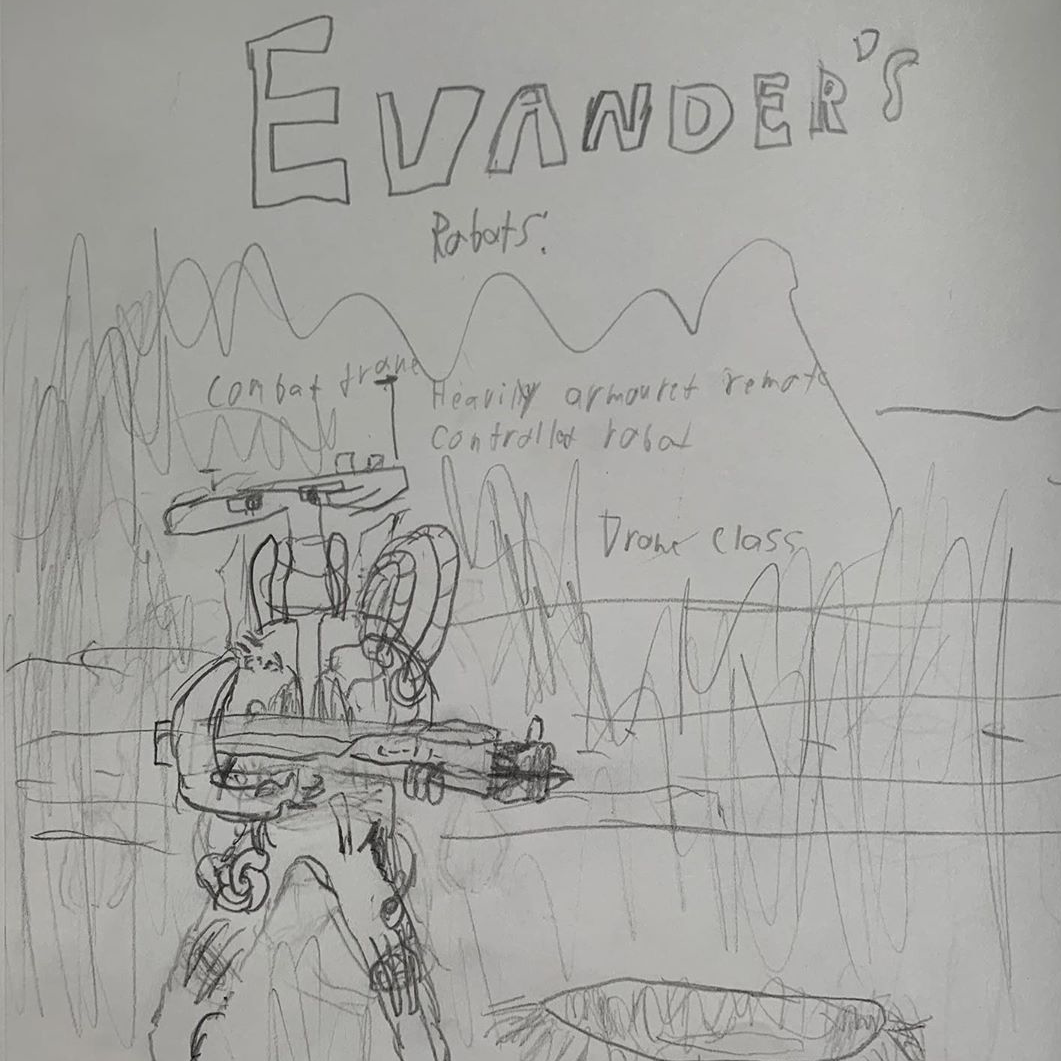 EVANDER'S
Rabats:
Combat drane
Heavily armouret remote
controlled rabat
Drane class